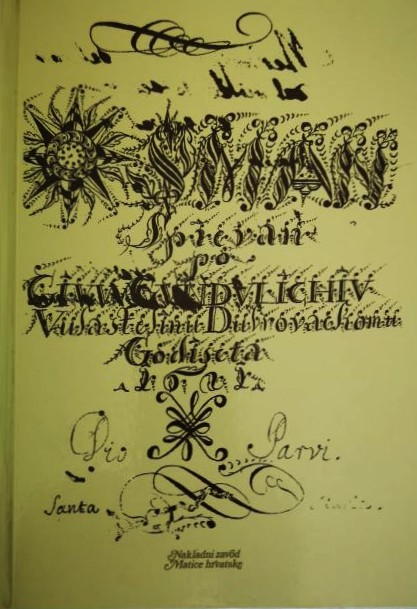 OSMAN
Spievan
po
GIVV GVNDVLICHIV
Vulastelinu Dubrovackomu
Godiscta
Dio Parvi.
Santa
Nakladni zavod
Matice hrvatske